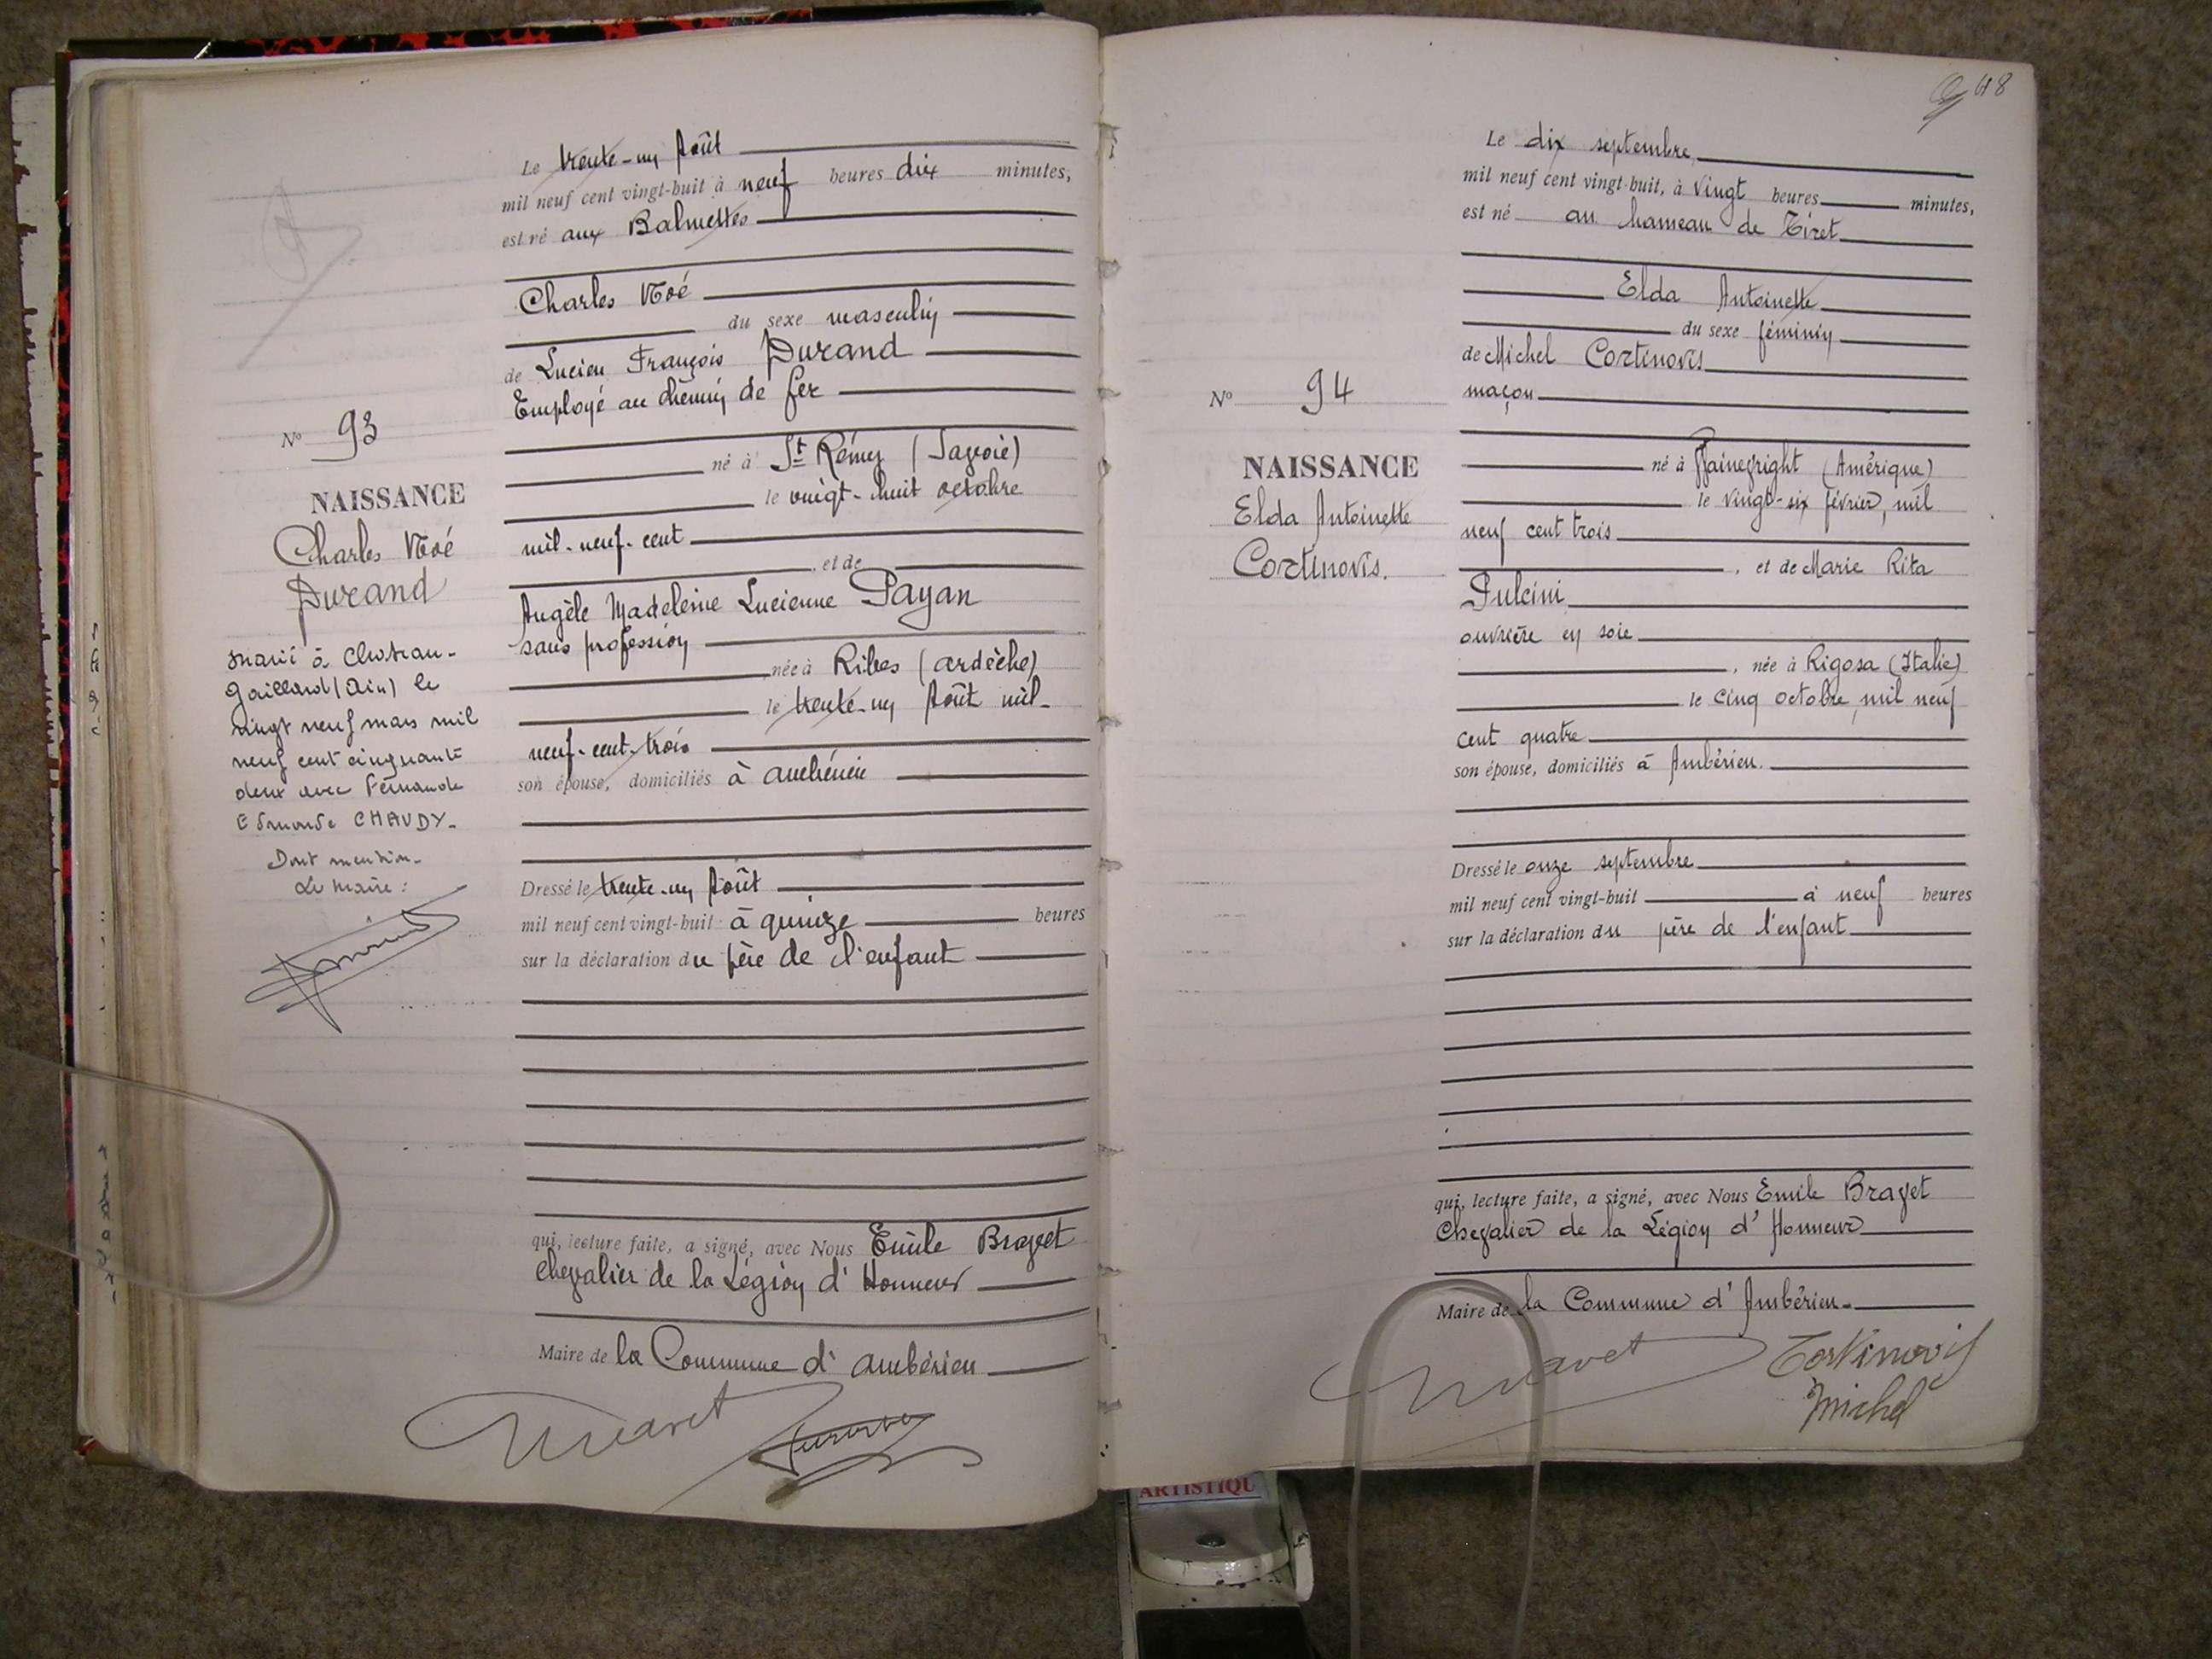 Le trente-un Août
mil neuf cent vingt-huit à neuf heures dix minutes,
est né aux Balmettes
Charles Noé
du sexe masculin
de Lucien François Durand
Employé au chemin de fer
né à St Rémy (Savoie)
le vingt-huit octobre
mil-neuf-cent
, et de
Angèle Madeleine Lucienne Payan
sans profession
née à Ribes (ardèche)
le trente-un Août mil-
neuf-cent-trois
son épouse, domiciliés à ambérieu
Dressé le trente-un Août
mil neuf cent vingt-huit à quinze heures
sur la déclaration du père de l'enfant
qui, lecture faite, a signé, avec Nous Emile Bravet
chevalier de la Légion d'Honneur
Maire de la Commune d'ambérieu
N° 93
NAISSANCE
Charles Noé
Durand
marié à Chateau-
Gaillard (Ain) le
vingt neuf mars mil
neuf cent cinquante
deux avec Fernande
Edmonde CHAUDY-
Dont mention-
Le Maire:
48
Le dix septembre
mil neuf cent vingt-huit, à vingt heures minutes,
est né au hameau de Tiret
Elda Antoinette
du sexe féminin
de Michel Cortinovis
maçon
né à (Amérique)
le vingt-six février, mil
neuf cent trois
, et de Marie Rita
Pulcini
ouvrière en soie
, née à Rigosa (Italie)
le cinq octobre, mil neuf
cent quatre
son épouse, domiciliés à Ambérieu.
Dressé le onze septembre
mil neuf cent vingt-huit à neuf heures
sur la déclaration du père de l'enfant
qui, lecture faite, a signé, avec Nous Emile Bravet
Chevalier de la Légion d'Honneur
Maire de la Commune d'Ambérieu.
Bravet Cortinovis
Michel
N° 94
NAISSANCE
Elda Antoinette
Cortinovis.
ARTISTIQU